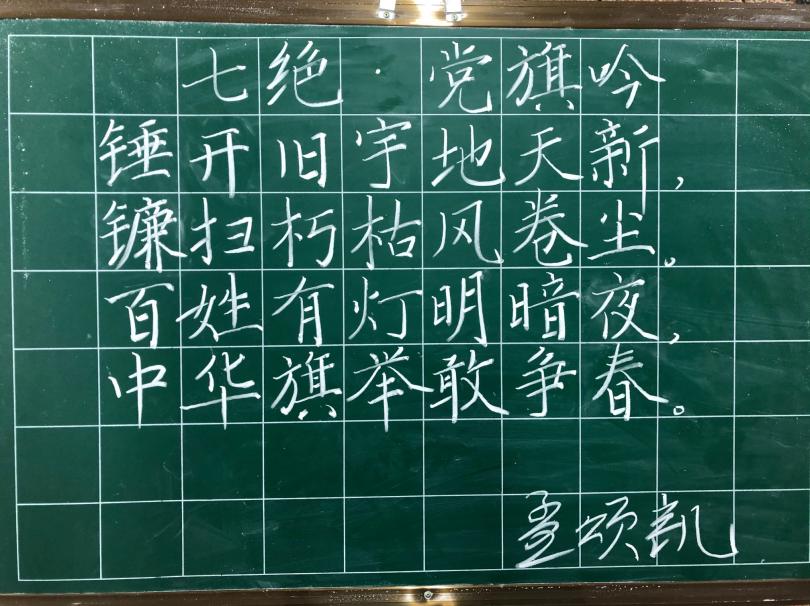 七绝·党旗吟
锤开旧宇地天新，
镰扫朽枯风卷尘。
百姓有灯明暗夜，
中华旗举敢争春。
孟颂凯